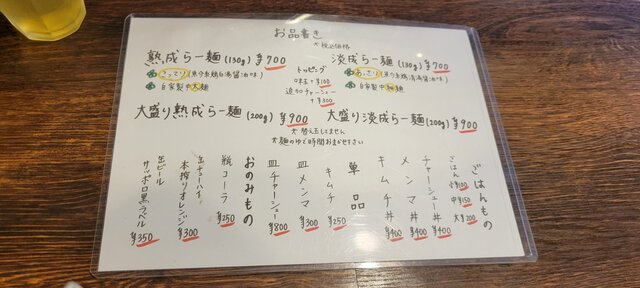 お品書き
※税込価格
熟成らー麺(130g) ¥700
こってり(魚介系鶏白湯醤油味)
自家製中太麺
トッピング
味玉 + ¥100
追加チャーシュー
+ ¥300
淡成らー麺(130g) ¥700
あっさり(魚介系鶏清湯醤油味)
自家製中細麺
大盛り熟成らー麺(200g) ¥900
大盛り淡成らー麺(200g) ¥900
※替え玉してません
※麺のゆで時間おまかせ下さい
ごはんもの
ごはん 小¥100 中¥150 大¥200
チャーシュー丼 ¥400
メンマ丼 ¥400
キムチ丼 ¥400
単品
キムチ ¥250
皿メンマ ¥300
皿チャーシュー ¥800
おのみもの
瓶コーラ ¥250
缶チューハイ
本搾りオレンジ ¥300
缶ビール
サッポロ黒ラベル ¥350